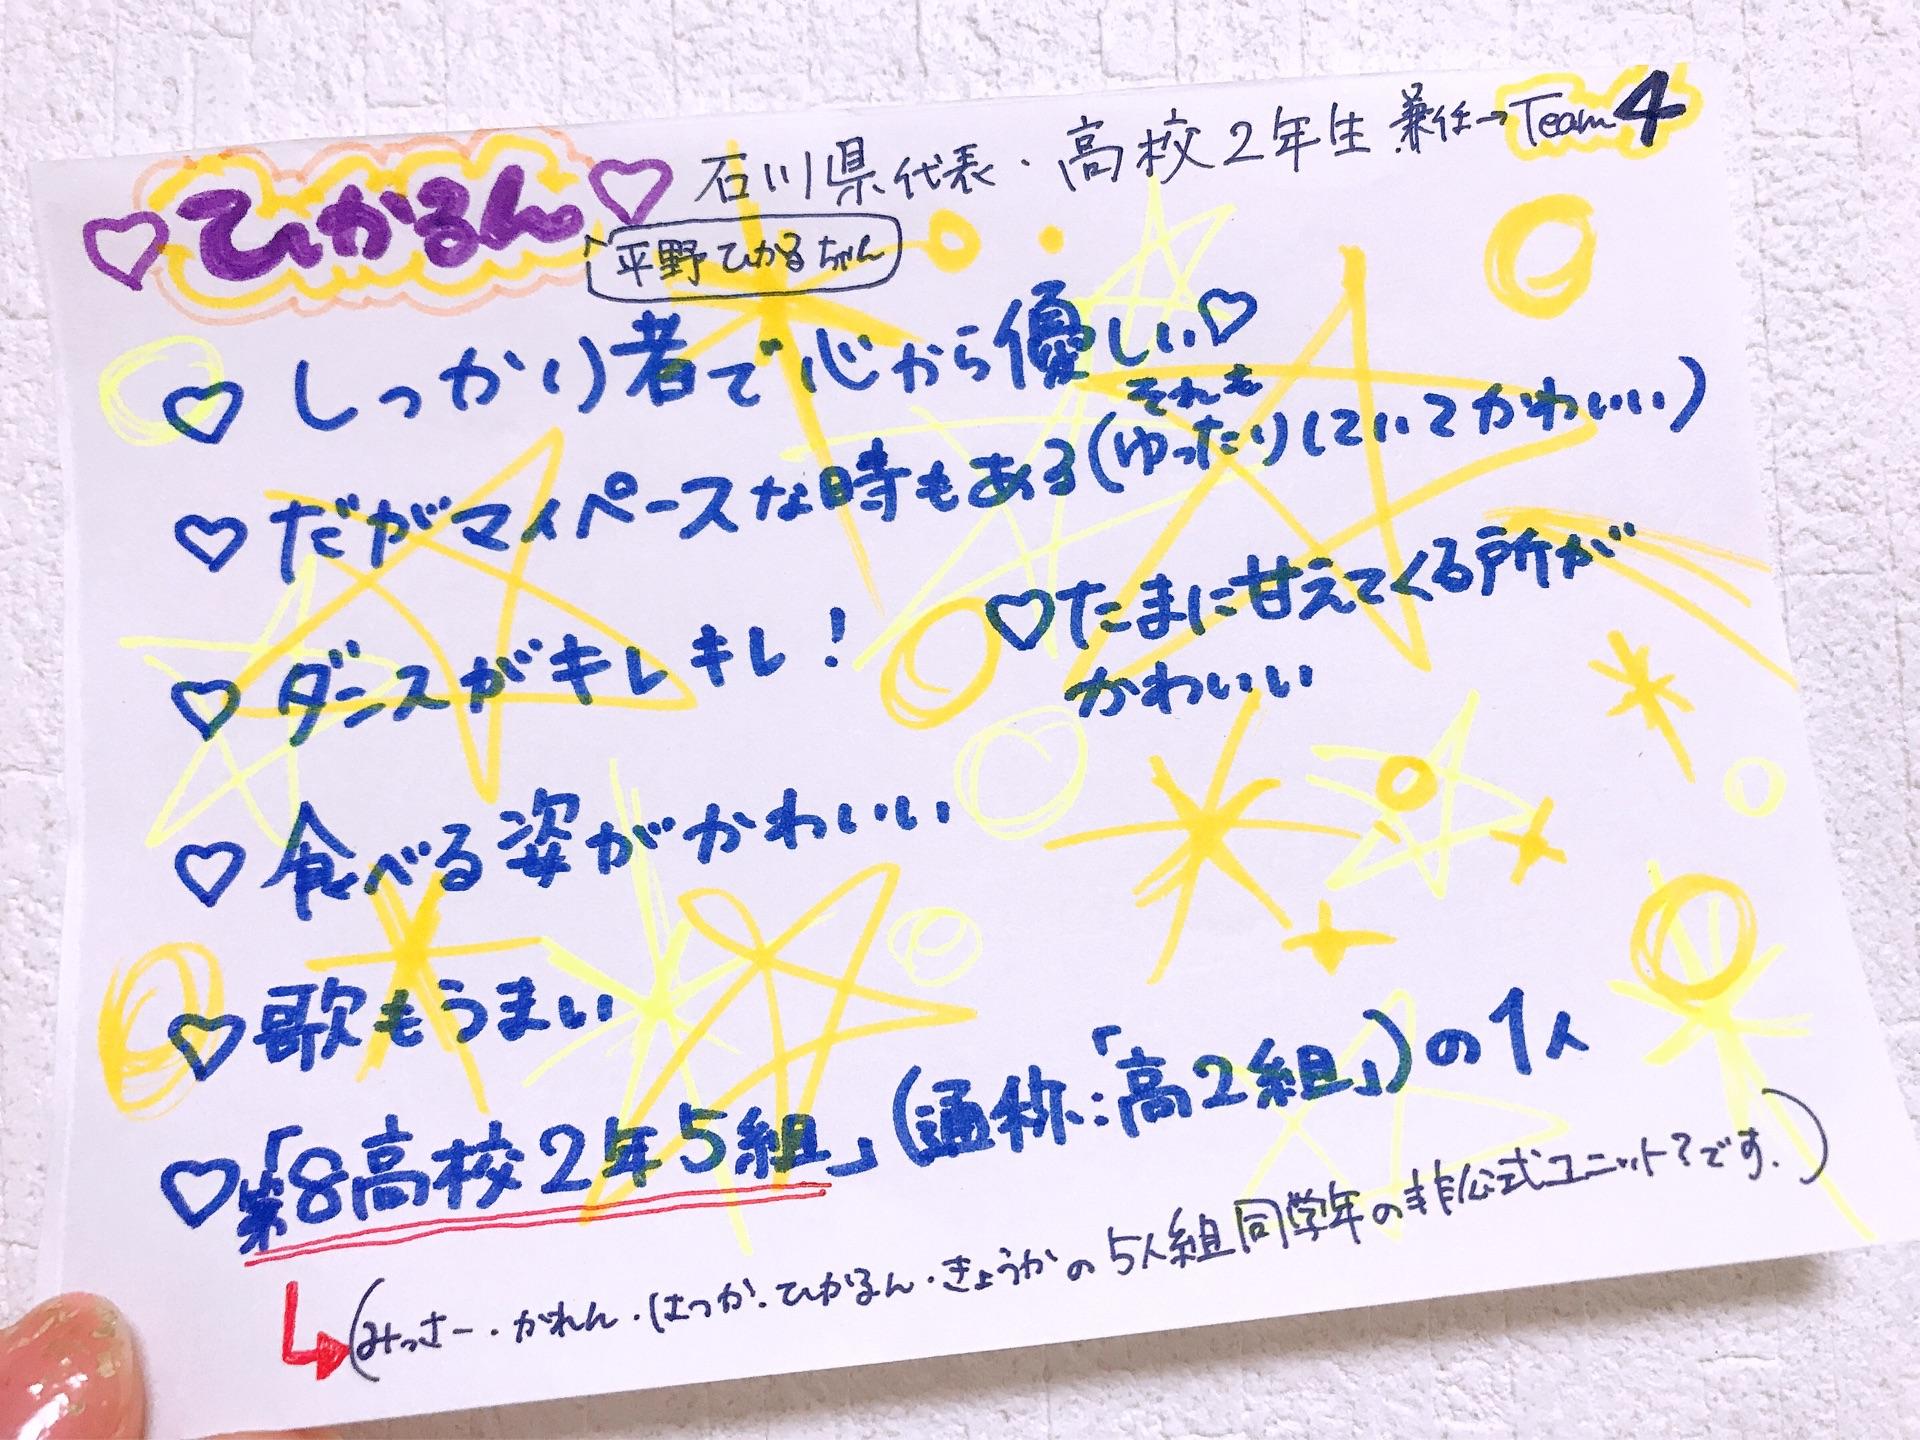 ♡ひかるん♡ 石川県代表・高校2年生 兼任→Team4
平野ひかるちゃん
♡ しっかり者で心から優しい♡
♡ だがマイペースな時もある(ゆったりしていてかわいい)
それも
♡ ダンスがキレキレ!
♡たまに甘えてくる所が
かわいい
♡ 食べる姿がかわいい
♡ 歌もうまい
♡「第8高校2年5組」(通称:「高2組」)の1人
(みっさー・かれん・はつか・ひかるん・きょうかの5人組 同学年の非公式ユニット?です.)